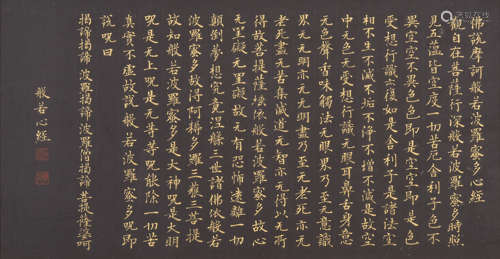 佛說摩訶般若波羅蜜多心經
觀自在菩薩行深般若波羅蜜多時照
見五蘊皆空度一切苦厄舍利子色不
異空空不異色色即是空空即是色
受想行識亦復如是舍利子是諸法空
相不生不滅不垢不淨不增不減是故空
中无色无受想行識无眼耳鼻舌身意
无色聲香味觸法无眼界乃至无意識
界无无明亦无无明盡乃至无老死亦无
老死盡无苦集滅道无智亦无得以无所
得故菩提薩埵依般若波羅蜜多故心
无罣礙无罣礙故无有恐怖遠離一切
顛倒夢想究竟涅槃三世諸佛依般若
波羅蜜多故得阿耨多羅三藐三菩提
故知般若波羅蜜多是大神呪是大明
呪是无上呪是无等等呪能除一切苦
真實不虛故說般若波羅蜜多呪即
說呪曰
揭諦揭諦 波羅揭諦 波羅僧揭諦 菩提薩婆訶
般若心經